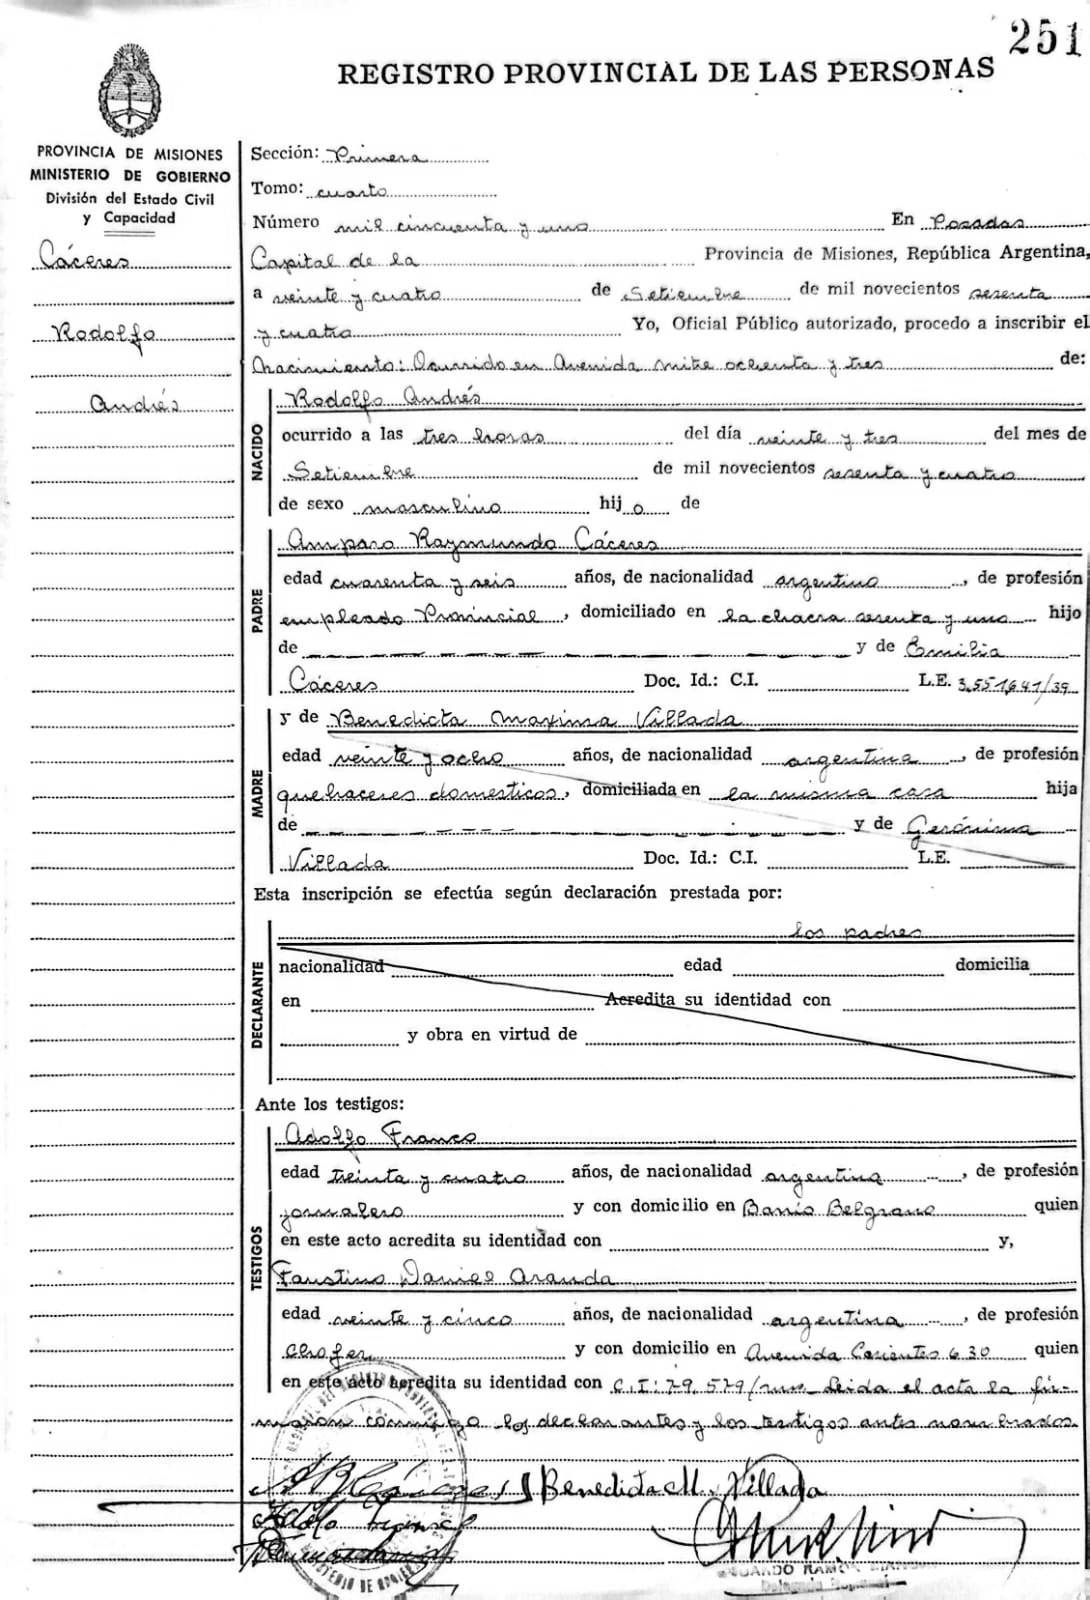 251
REGISTRO PROVINCIAL DE LAS PERSONAS
PROVINCIA DE MISIONES
MINISTERIO DE GOBIERNO
División del Estado Civil
y Capacidad
Cáceres
Rodolfo
Andrés
Sección: Primera
Tomo: cuarto
Número mil cincuenta y uno En Posadas
Capital de la Provincia de Misiones, República Argentina,
a veinte y cuatro de Setiembre de mil novecientos sesenta
y cuatro Yo, Oficial Público autorizado, procedo a inscribir el
Nacimiento: Ocurrido en Avenida mitre ochenta y tres de:
NACIDO
Rodolfo Andrés
ocurrido a las tres horas del día veinte y tres del mes de
Setiembre de mil novecientos sesenta y cuatro
de sexo masculino hijo de
PADRE
Amparo Raymundo Cáceres
edad cuarenta y seis años, de nacionalidad argentino, de profesión
empleado Provincial, domiciliado en la chacra sesenta y uno hijo
de y de Emilia
Cáceres Doc. Id.: C.I. L.E. 3.551.641/39
MADRE
y de Benedicta Maxima Villada
edad veinte y ocho años, de nacionalidad argentina, de profesión
quehaceres domesticos, domiciliada en la misma casa hija
de y de Gerónima
Villada Doc. Id.: C.I. L.E.
Esta inscripción se efectúa según declaración prestada por:
DECLARANTE
los padres
nacionalidad edad domicilia
en Acredita su identidad con
y obra en virtud de
Ante los testigos:
TESTIGOS
Adolfo Franco
edad treinta y cuatro años, de nacionalidad argentina, de profesión
jornalero y con domicilio en Barrio Belgrano quien
en este acto acredita su identidad con y,
Faustino Daniel Aranda
edad veinte y cinco años, de nacionalidad argentina, de profesión
chofer y con domicilio en Avenida Corientes 630 quien
en este acto acredita su identidad con C.I: 79.579/ Leida el acta la fir-
maron conmigo los declarantes y los testigos antes nombrados
Benedicta M. Villada
RAMON